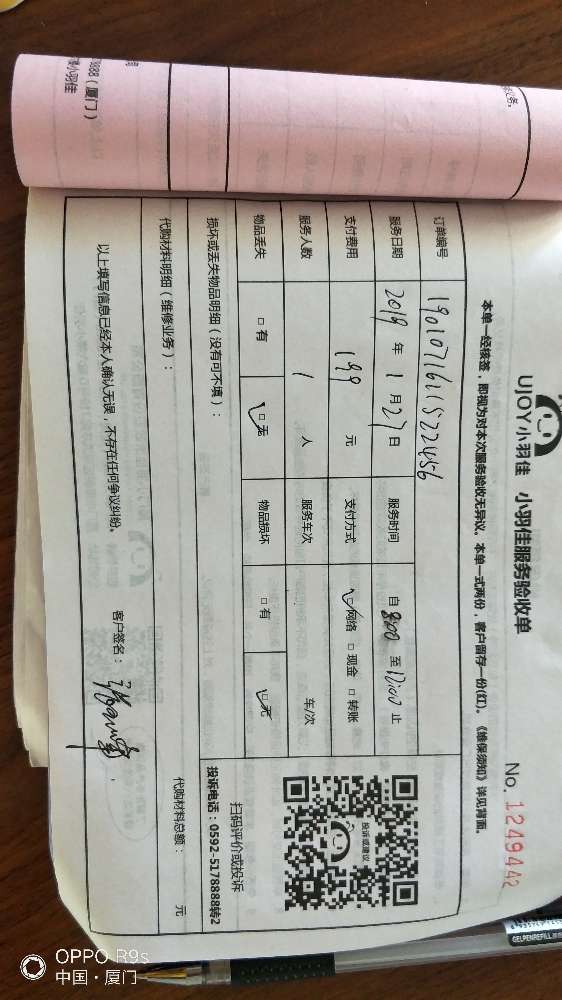 UJOY小羽佳 小羽佳服务验收单
No. 1249442
本单一经核签，即视为对本次服务验收无异议。本单一式两份，客户留存一份(红)。《维保须知》详见背面。
订单编号 1901071611522456
服务日期 2019 年 1 月 27 日 服务时间 自 8:00 至 12:00 止
支付费用 199 元 支付方式 □网络 □现金 □转账
服务人数 1 人 服务车次 车/次
物品丢失 □有 □无 物品损坏 □有 □无
投诉或建议
扫码评价或投诉
投诉电话：0592-5178888转2
损坏或丢失物品明细（没有可不填）：
代购材料明细（维修业务）： 代购材料总额： 元
以上填写信息已经本人确认无误，不存在任何争议纠纷。 客户签名：
8888（厦门）
小羽佳
GELPENREFILL
OPPO R9s
中国·厦门